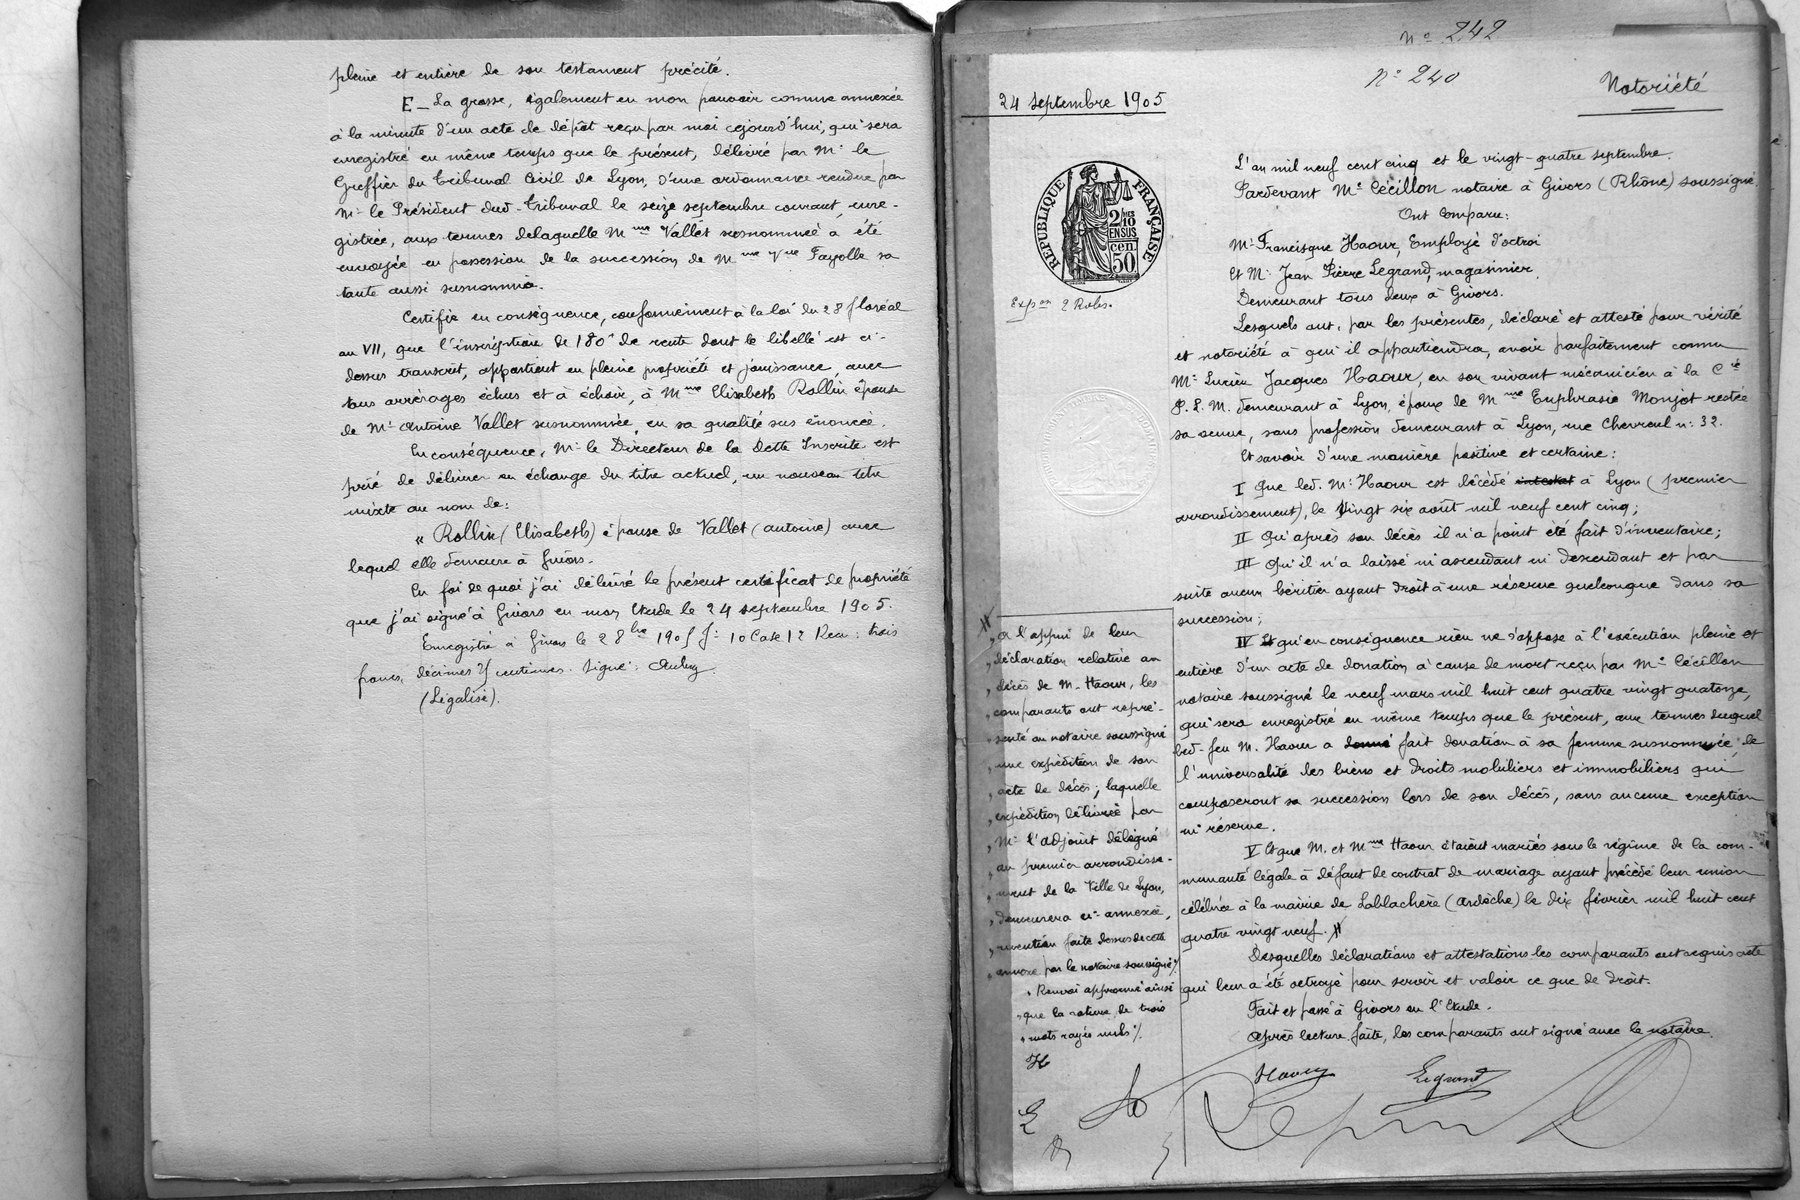 pleine et entière de son testament précité.
E_ La grosse, également en mon pouvoir comme annexée
à la minute d'un acte de dépôt reçu par moi cejourd'hui, qui sera
enregistré en même temps que le présent, délivré par Mr le
Greffier du Tribunal Civil de Lyon, d'une ordonnance rendue par
Mr le Président dud. Tribunal le seize septembre courant, enre-
gistrée, aux termes delaquelle Mme Vallet susnommée a été
envoyée en possession de la succession de Mme Vve Fayolle sa
tante aussi susnommée.
Certifie en conséquence, conformément à la loi du 28 floréal
an VII, que l'inscription de 180f de rente dont le libellé est ci-
dessus transcrit, appartient en pleine propriété et jouissance, avec
tous arrérages échus et à échoir, à Mme Elisabeth Rollin épouse
de Mr Antoine Vallet susnommée, en sa qualité sus énoncée.
En conséquence, Mr le Directeur de la Dette Inscrite est
prié de délivrer en échange du titre actuel, un nouveau titre
mixte au nom de:
« Rollin (Elisabeth) épouse de Vallet (antoine) avec
lequel elle demeure à Givors.
En foi de quoi j'ai délivré le présent certificat de propriété
que j'ai signé à Givors en mon Etude le 24 septembre 1905.
Enregistré à Givors le 28 bre 1905 fo 10 Case 12 Reçu: trois
francs, décimes 75 centimes. Signé: Aubry.
(Légalisé).
No 242
No 240
Notoriété
24 septembre 1905
REPUBLIQUE FRANÇAISE
2/10
EN SUS
cen.
50
Expon 2 Roles.
L'an mil neuf cent cinq et le vingt-quatre septembre.
Pardevant Me Cécillon notaire à Givors (Rhône) soussigné.
Ont comparu:
Mr Francisque Haour, Employé d'octroi
Et Mr Jean Pierre Legrand, magasinier,
Demeurant tous deux à Givors.
Lesquels ont, par les présentes, déclaré et attesté pour vérité
et notoriété à qui il appartiendra, avoir parfaitement connu
Mr Lucien Jacques Haour, en son vivant mécanicien à la Cie
P. L. M. demeurant à Lyon, époux de Mme Euphrasie Monjot restée
sa veuve, sans profession demeurant à Lyon, rue Chevreul no 32.
Et savoir d'une manière positive et certaine:
I Que led. Mr Haour est décédé intestat à Lyon (premier
arrondissement), le vingt six août mil neuf cent cinq;
II Qu'après son décès il n'a point été fait d'inventaire;
III Qu'il n'a laissé ni ascendant ni descendant et par
suite aucun héritier ayant droit à une réserve quelconque dans sa
succession;
IV Et qu'en conséquence rien ne s'oppose à l'exécution pleine et
entière d'un acte de donation à cause de mort reçu par Me Cécillon
notaire soussigné le neuf mars mil huit cent quatre vingt quatorze,
qui sera enregistré en même temps que le présent, aux termes duquel
led. feu M. Haour a donné fait donation à sa femme susnommée de
l'universalité des biens et droits mobiliers et immobiliers qui
composeront sa succession lors de son décès, sans aucune exception
ni réserve.
V Et que M. et Mme Haour étaient mariés sous le régime de la com-
munauté légale à défaut de contrat de mariage ayant précédé leur union
célébrée à la mairie de Lablachère (Ardèche) le dix février mil huit cent
quatre vingt neuf. H
Desquelles déclarations et attestations les comparants ont requis acte
qui leur a été octroyé pour servir et valoir ce que de droit.
Fait et passé à Givors en l'Etude.
Après lecture faite, les comparants ont signé avec le notaire.
H
, à l'appui de leur
, déclaration relative au
, décès de M. Haour, les
, comparants ont repré-
, senté au notaire soussigné
, une expédition de son
, acte de décès; laquelle
, expédition délivrée par
, Mr l'adjoint délégué
, au premier arrondisse-
, ment de la Ville de Lyon,
, demeurera ci-annexée,
, mention faite dessus de cette
, annexe par le notaire soussigné %.
, Renvoi approuvé ainsi
, que la rature de trois
, mots rayés nuls %.
Haour
Legrand